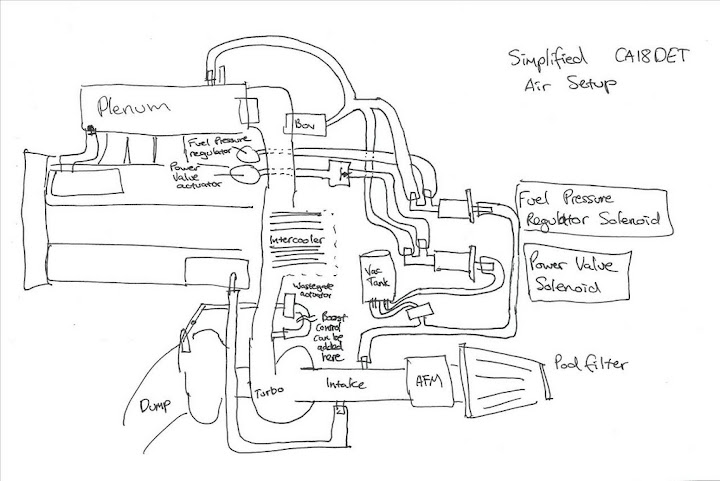 Simplified CA18DET
Air Setup
Plenum
BOV
Fuel Pressure
regulator
Power
Valve
actuator
Fuel Pressure
Regulator Solenoid
Intercooler
Vac
Tank
Power Valve
Solenoid
Wastegate
actuator
Boost
Control
can be
added
here
Pod filter
Turbo
Intake
AFM
Dump